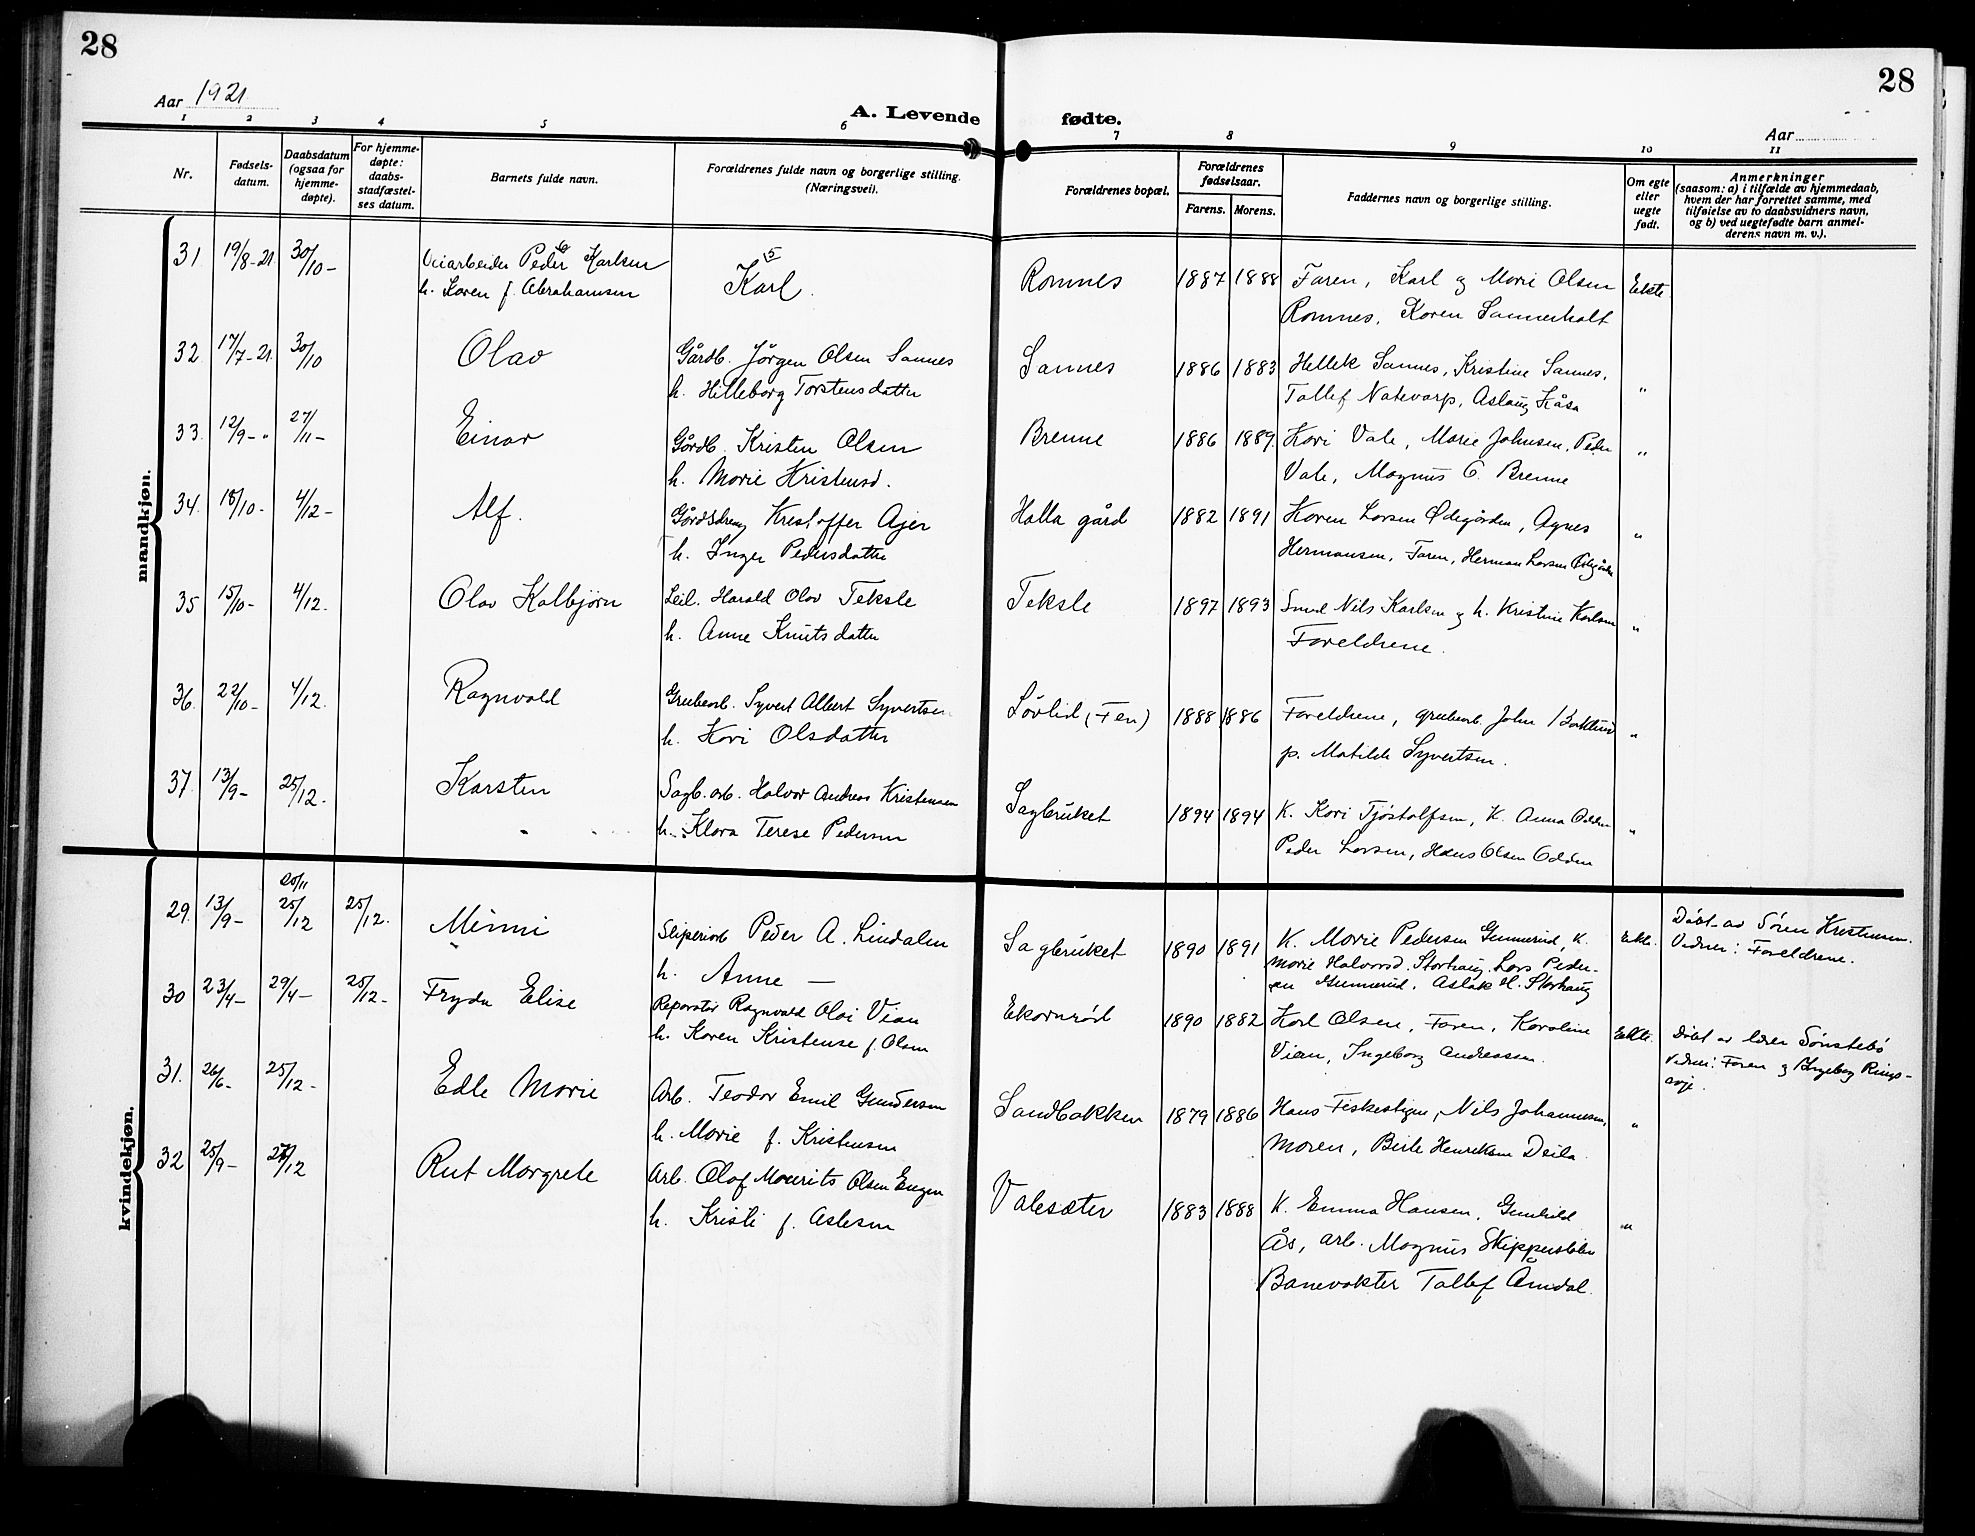 28
28
Aar 1921
A. Levende fødte.
Aar
1 2 3 4 5 6 7 8 9 10 11
Nr.
Fødsels-
datum.
Daabsdatum
(ogsaa for
hjemme-
døpte).
For hjemme-
døpte:
daabs-
stadfæstel-
ses datum.
Barnets fulde navn.
Forældrenes fulde navn og borgerlige stilling.
(Næringsvei).
Forældrenes bopæl.
Forældrenes
fødselsaar.
Farens. Morens.
Faddernes navn og borgerlige stilling.
Om egte
eller
uegte
født.
Anmerkninger
(saasom: a) i tilfælde av hjemmedaab,
hvem der har forrettet samme, med
tilføielse av to daabsvidners navn,
og b) ved uegtefødte barn anmel-
derens navn m. v.).
mandkjøn.
31 19/8-21 30/10- Veiarbeider Peder Karlsen 5 Karl. Romnes 1887 1888 Faren, Karl og Marie Olsen Ekte
6
h. Karen f. Abrahamsen Romnes, Karen Sannerholt
32 17/7-21. 30/10 Olav Gårdb. Jörgen Olsen Sannes Sannes 1886 1883 Hellek Sannes, Kristine Sannes, "
h. Hilleborg Torstensdatter Tallef Natevarp, Aslaug Kåsa
33. 12/9-" 27/11- Einar Gårdb. Kristen Olsen Brenne 1886 1889 Kari Vale, Marie Johnsen, Peder "
h. Marie Kristensd. Vale, Magnus O. Brenne
34. 18/10- 4/12- Alf. Gårdsdreng Kristoffer Ajer Halla gård 1882 1891 Karen Larsen Ødegården, Agnes "
h. Inger Pedersdatter Hermansen, Faren, Herman Larsen Ødegården
35 15/10- 4/12. Olav Kolbjörn Leil. Harald Olav Teksle Teksle 1897 1893 Smed Nils Karlsen og h. Kristine Karlsen "
h. Anne Knutsdatter Foreldrene.
36. 22/10- 4/12. Ragnvald Grubearb. Syvert Albert Syvertsen Lövlid (Fen) 1888 1886 Foreldrene, grubearb. John "
h. Kari Olsdatter p. Matilde Syvertsen.
37. 13/9- 25/12. Karsten Sagb. arb. Halvor Andreas Kristensen Sagbruket 1894 1894 K. Kari Tjöstolfsen, K. Anna Odden "
h. Klara Terese Pedersen Peder Larsen, Hans Olsen Odden
kvindekjøn.
20/11
29. 13/9- 25/12 25/12. Minni Sliperiarb Peder A. Lindalen Sagbruket 1890 1891 K. Marie Pedersen Gunnerud, K. Ekte. Döbt av Sören Kristensen.
h. Anne — Marie Halvorsd. Storhaug, Lars Peder- Vidner: Foreldrene.
sen Gunnerud, Aslak H. Storhaug
30 23/4- 29/4- 25/12- Fryda Elise Reparatör Ragnvald Olai Vian Ekornröd 1890 1882 Karl Olsen, Faren, Karoline Ekte. Döbt av lærer Sönstebö
h. Karen Kristense f. Olsen Vian, Ingeborg Andreassen. Vidner: Faren og Ingeborg Rings-
31. 26/6- 25/12- Edle Marie Arb. Teodor Emil Gundersen Sandbakken 1879 1886 Hans Fiskestigen, Nils Johannesen, "
h. Marie f. Kristensen Moren, Berte Henriksen Deila.
32 25/9- 12 Rut Margrete Arb. Olaf Mauritz Olsen Valesæter 1883 1888 K. Emma Hansen, Gunhild "
h. Kristi f. Aslesen Ås, arb. Magnus
Banevokter Tallef Åmdal.